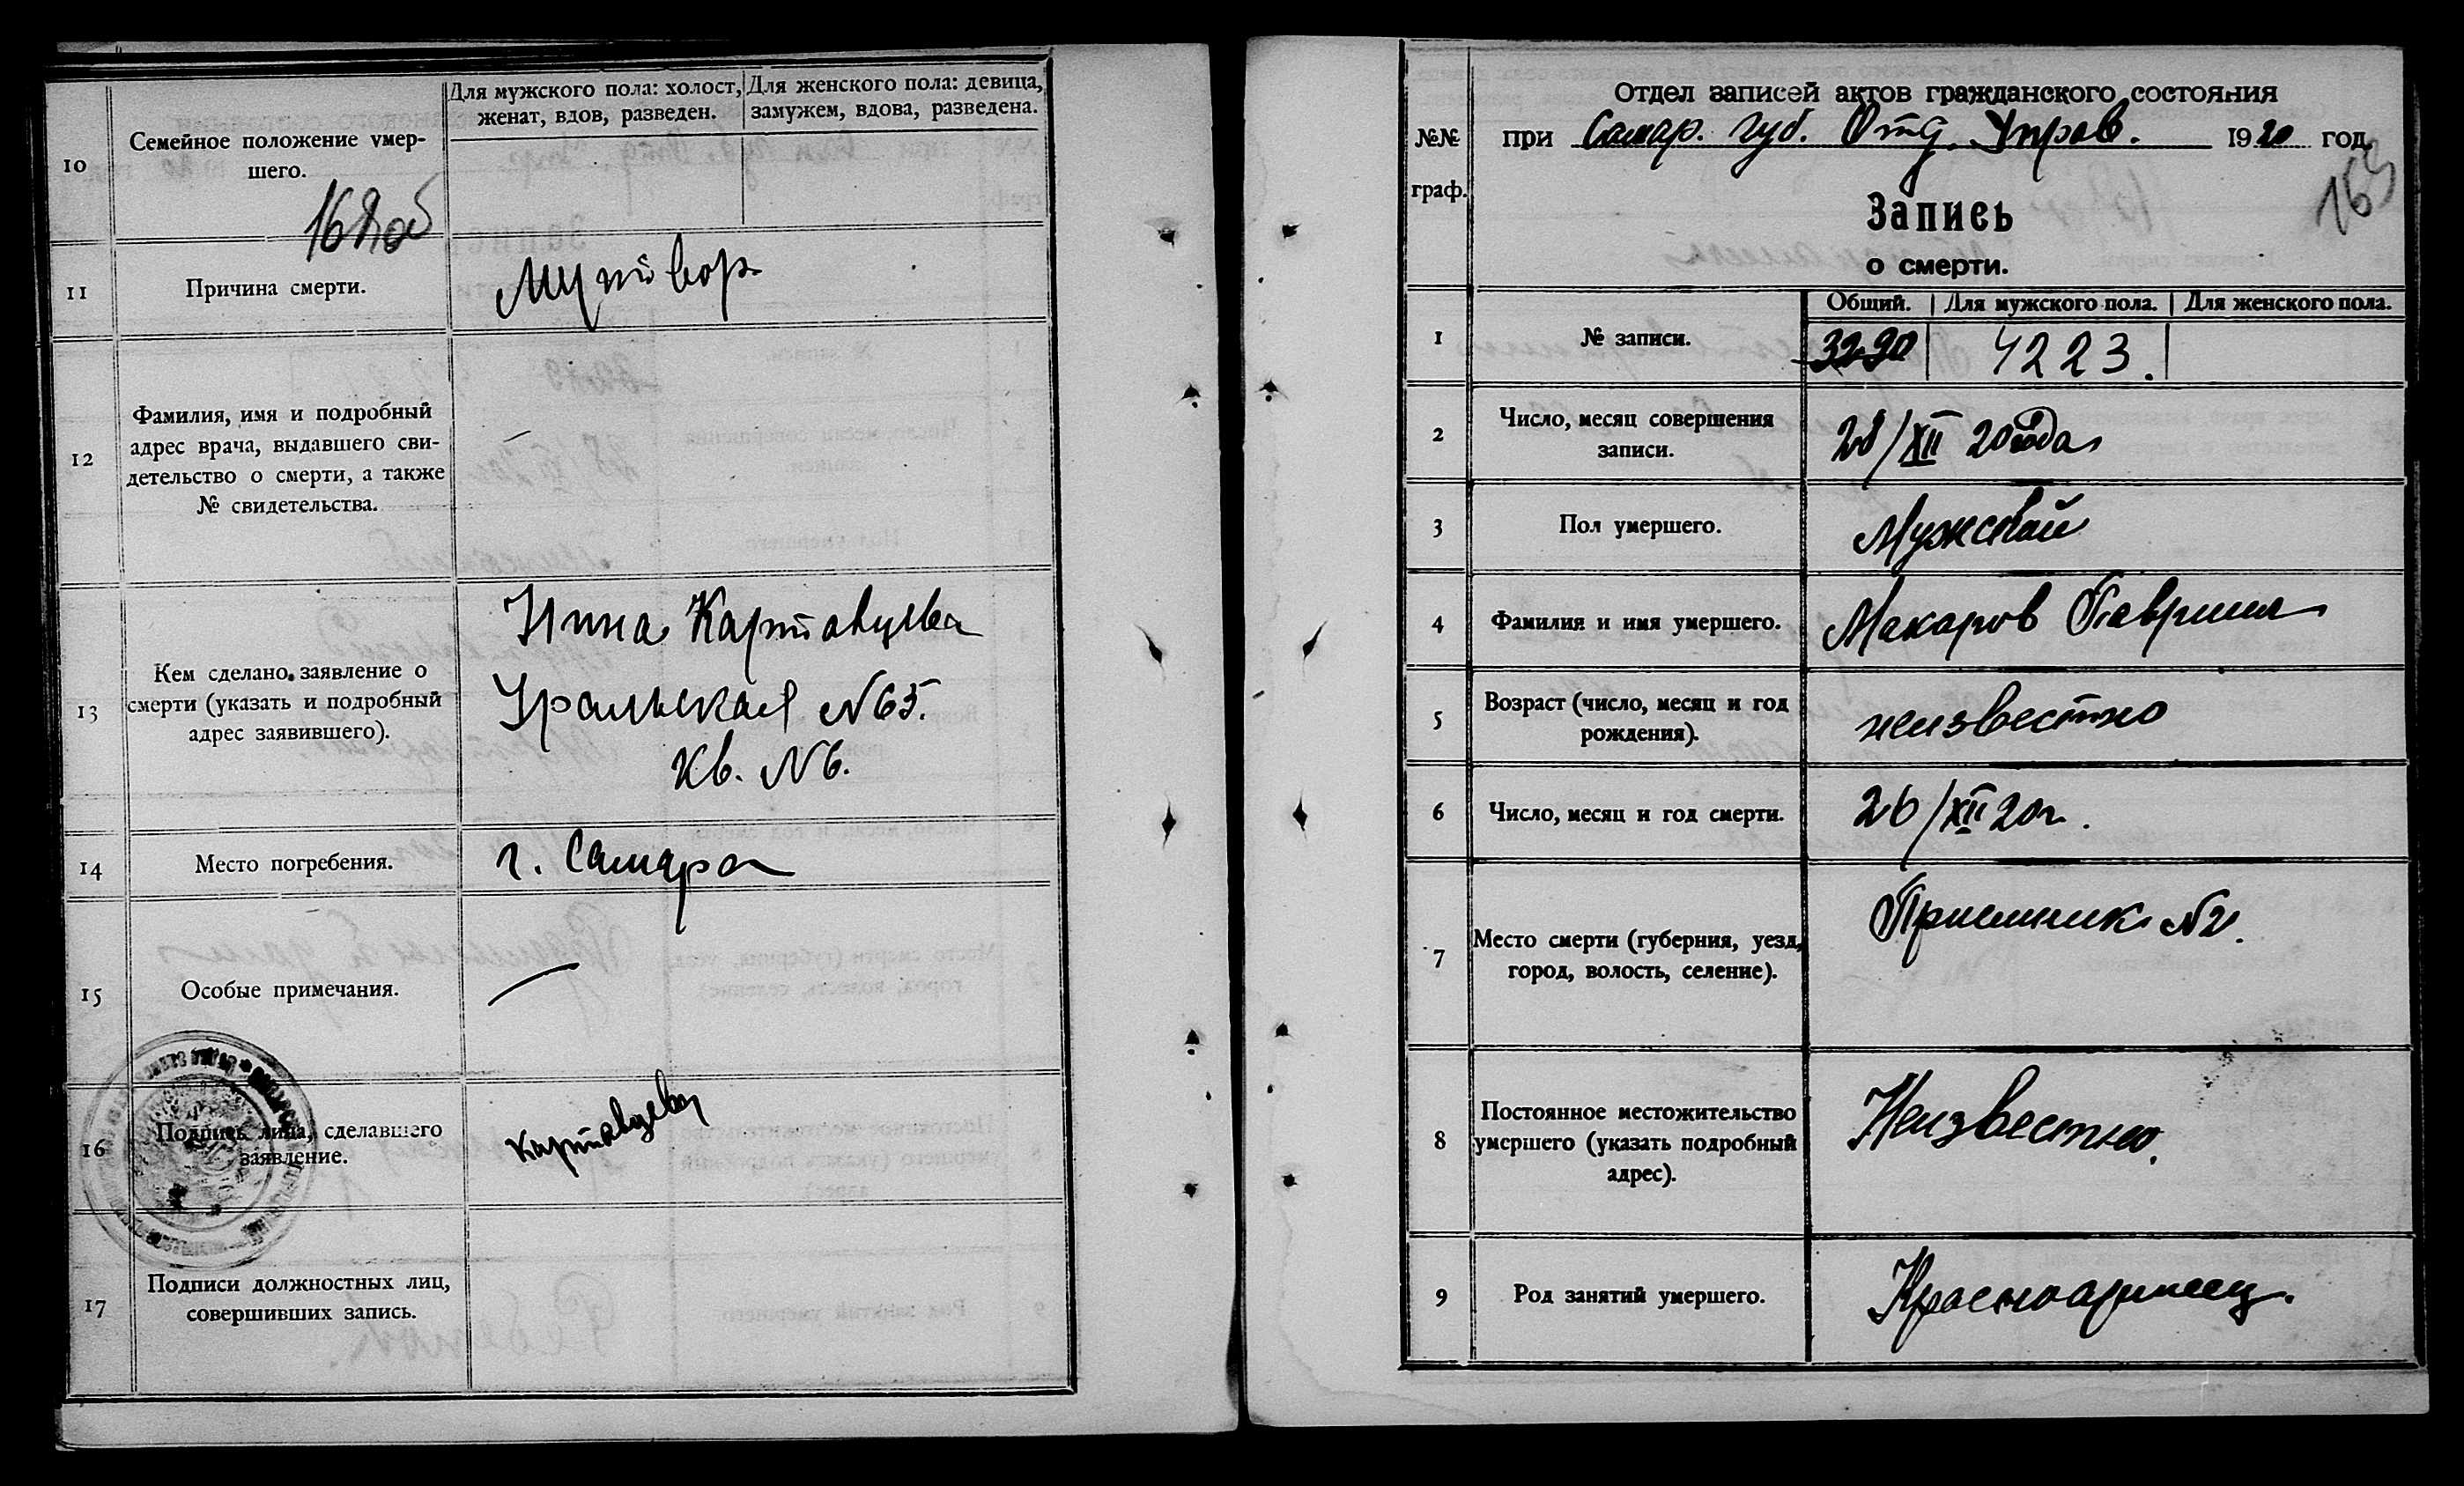 10
Семейное положение умер-
шего.
Для мужского пола: холост,
женат, вдов, разведен.
Для женского пола: девица,
замужем, вдова, разведена.
11
Причина смерти.
12
Фамилия, имя и подробный
адрес врача, выдавшего сви-
детельство о смерти, а также
№ свидетельства.
—
13
Кем сделано заявление о
смерти (указать и подробный
адрес заявившего).
Нина Картавцева
Уральская №65.
Кв. №6.
14
Место погребения.
г. Самара
15
Особые примечания.
—
16
Подпись лица, сделавшего
заявление.
Картавцева
17
Подписи должностных лиц,
совершивших запись.
№№
граф.
Отдел записей актов гражданского состояния
при Самар. Губ. Отд. Управ. 1920 год
163
Запись
о смерти.
1
№ записи.
Общий. Для мужского пола. Для женского пола.
3290 4223.
2
Число, месяц совершения
записи.
28/XII 20 года
3
Пол умершего.
Мужской
4
Фамилия и имя умершего.
Макаров Гавриил
5
Возраст (число, месяц и год
рождения).
неизвестно
6
Число, месяц и год смерти.
26/XII 20г.
7
Место смерти (губерния, уезд,
город, волость, селение).
Приемник №2.
8
Постоянное местожительство
умершего (указать подробный
адрес).
Неизвестно.
9
Род занятий умершего.
Красноармеец.